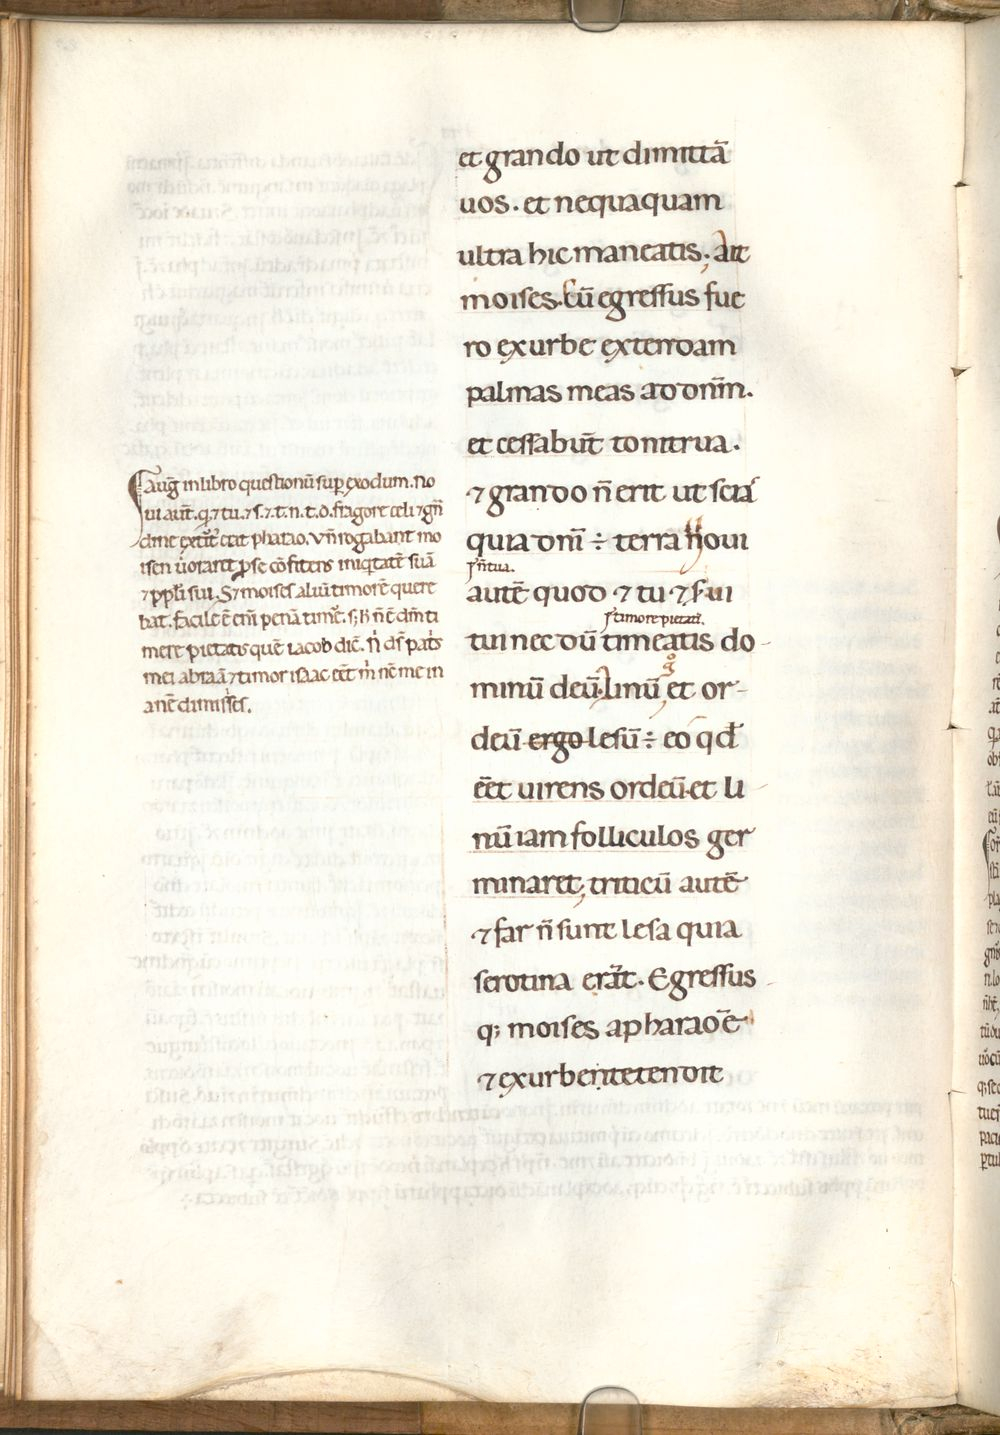 et grando ut dimittā
uos. et nequaquam
ultra hic maneatis. Ait
moises. Cū egressus fue
ro ex urbe extendam
palmas meas ad dn̄m.
et cessabun̄t tonitrua.
⁊ grando n̄ erit ut sciā
quia dn̄i ÷ terra Noui
autē quod ⁊ tu ⁊ serui
tui nec dū timeatis do-
minū deū. Linū et or-
deū ergo lesū ÷ eo qđ
ēēt uirens ordeū. et li
nū iam folliculos ger
minaret; triticū autē
⁊ far n̄ sunt lesa quia
serotina erāt. Egressus
q; moises a pharaoē
⁊ ex urbe tetendit
Auḡ in libro questionū sup̱ exodum. No
ui aut̄. q. ⁊ tu. ⁊ s. ⁊ t. n. t. d. fragore celi
t̄rit̄ erat pharao. vn̄ rogabant mo
isen ut oraret ꝓ se cōfitens iniq̇tatē suā
⁊ pp̱li sui. S; moises aliū timorē quere
bat. facile ē em̄ penā timēͬ. s; h̄ n̄ ē dm̄ ti
mere pietatis quē iacob dic̄. n̄ ds̄ pat̄s
mei abraā ⁊ timor isaac eēt m̄ nē me in
anē dimis̄s̄.
s. timore pietatis.